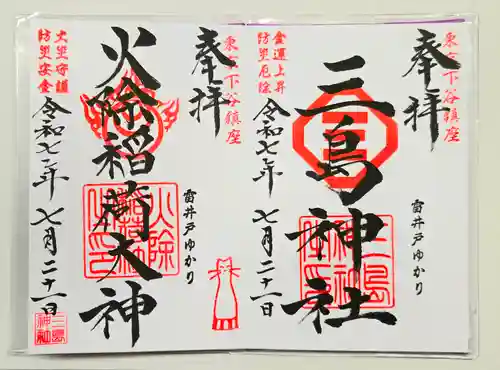 奉拝
東京下谷鎮座
三島神社
雷井戸ゆかり
金運上昇
防災厄除
令和七年 七月二十一日
奉拝
東京下谷鎮座
火除稲荷大神
雷井戸ゆかり
火災守護
防災安全
令和七年 七月二十一日
三島神社